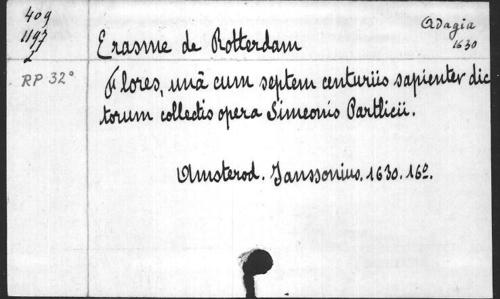 409
1197
2
RP 32°
Adagia
1630
Erasme de Rotterdam
Flores, unâ cum septem centuriis sapienter dic
torum collectis opera Simeonis Partlicii.
Amsterod. Janssonius. 1630. 16°.